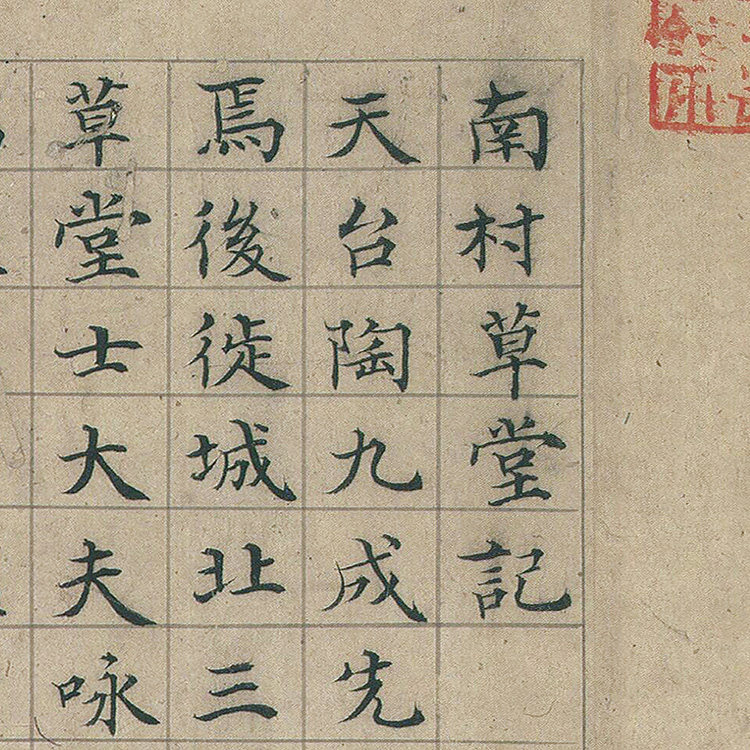 南村草堂記
天台陶九成先
焉後徙城北三
草堂士大夫咏